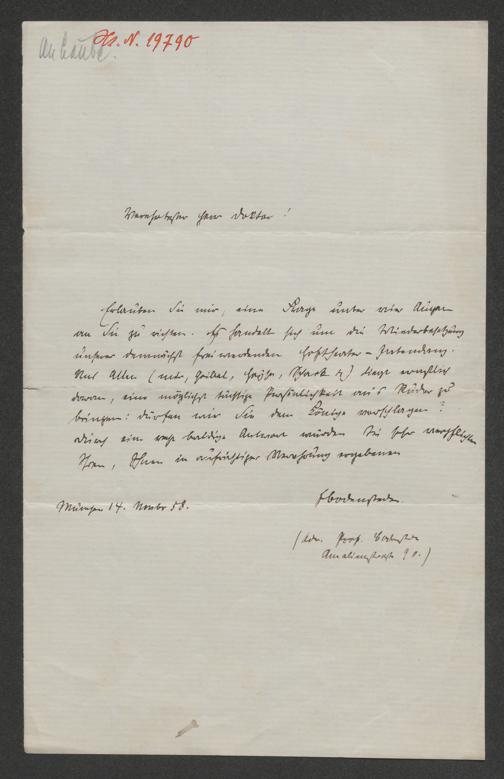 An Laube.
Hs. N. 19790
Verehrtester Herr Doktor!
Erlauben Sie mir, eine Frage unter vier Augen
an Sie zu richten. Es handelt sich um die Wiederbesetzung
unserer demnächst freiwerdenden Hoftheater-Intendanz.
Uns Allen (mir, Geibel, Heyse, Schack &) liegt ernstlich
daran, eine möglichst tüchtige Persönlichkeit an's Ruder zu
bringen: dürfen wir Sie dem Könige vorschlagen?
Durch eine recht baldige Antwort würden Sie sehr verpflichten
Ihren, Ihnen in aufrichtiger Verehrung ergebenen
FBodenstedt
München 14. Novbr 58.
(Adr. Prof. Bodenstedt
Amalienstraße 90.)